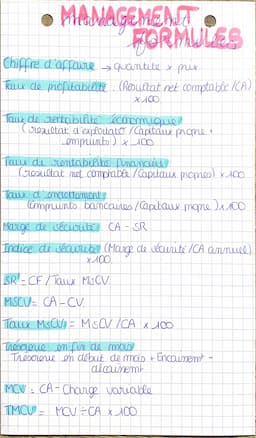 MANAGEMENT
FORMULES
Chiffre d'affaire → quantité x prix
Taux de profitabilité : (Résultat net comptable / CA)
x 100
Taux de rentabilité économique :
(résultat d'exploitat° / Capitaux propre +
emprunts) x 100
Taux de rentabilité financière :
(résultat net comptable / Capitaux propres) x 100
Taux d'endettement :
(emprunts bancaires / Capitaux propre) x 100
Marge de sécurité : CA - SR
Indice de sécurité : (Marge de sécurité / CA annuel)
x 100
SR = CF / Taux MSCV
MSCV = CA - CV
Taux MSCV = MSCV / CA x 100
Trésorerie en fin de mois :
Trésorerie en début de mois + Encaissmt -
décaissmt
MCV = CA - Charge variable
TMCV = MCV ÷ CA x 100